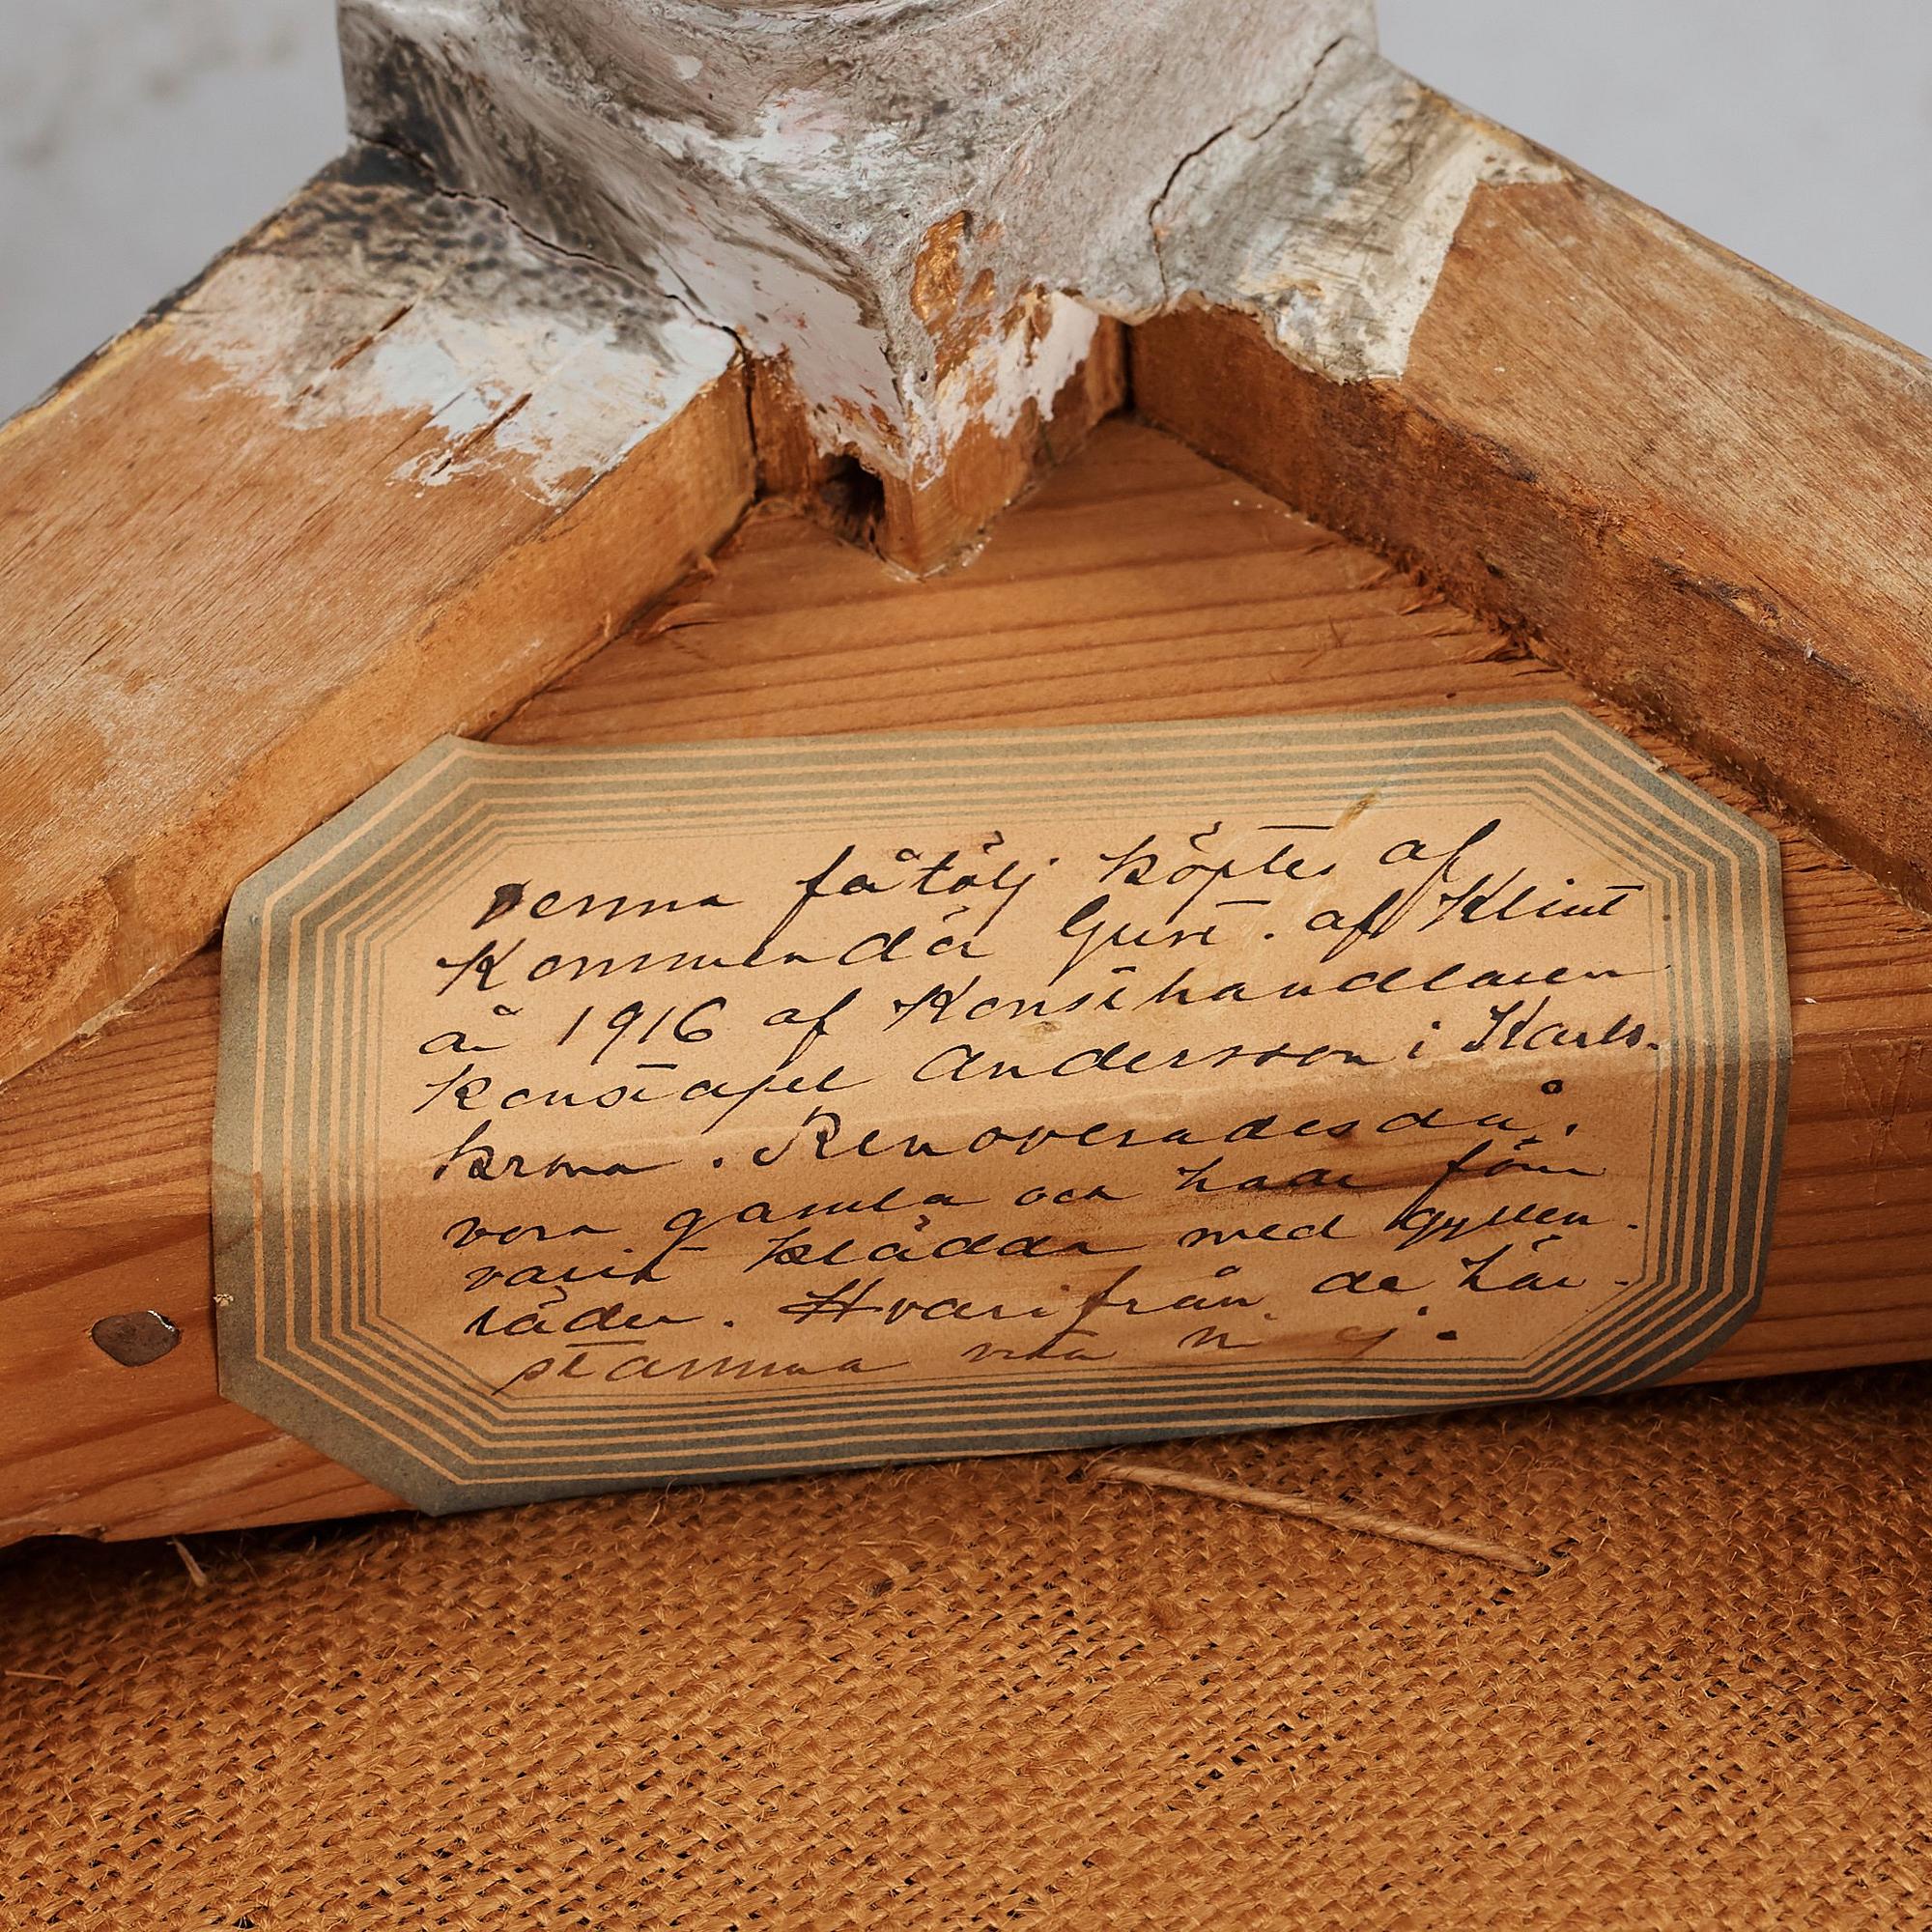 Denna fåtölj köptes af
Kommendör Gust. af Klint
år 1916 af Konsthandlaren
Konstapel Andersson i Karls-
krona. Renoverades då,
voro gamla och hade förr
varit klädda med gyllen-
läder. Hvarifrån de här-
stamma veta vi ej.